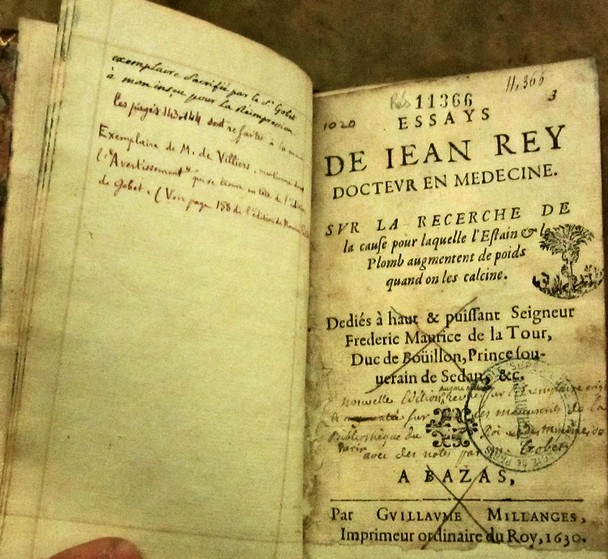 exemplaire sacrifié par le Sr Gobet
à mon insçu pour la Reimpression
les pages 143.144 sont refaites à la
Exemplaire de M. de Villiers, mentionné dans
l'"Avertissement" qui se trouve en tête de l'
de Gobet. (Voir page 158 de l'édition de
11,366
Rés 11366
3
1020
ESSAYS
DE IEAN REY
DOCTEVR EN MEDECINE.
SVR LA RECERCHE DE
la cauſe pour laquelle l'Eſtain & le
Plomb augmentent de poids
quand on les calcine.
Dediés à haut & puiſſant Seigneur
Frederic Maurice de la Tour,
Duc de Boüillon, Prince ſou-
uerain de Sedan, &c.
nouvelle Edition, revue sur l'Exemplaire
augmentée sur les manuscrits de la
Bibliothèque du Roi
Paris avec des notes par M. Gobet
A BAZAS,
Par GVILLAVME MILLANGES,
Imprimeur ordinaire du Roy, 1630.